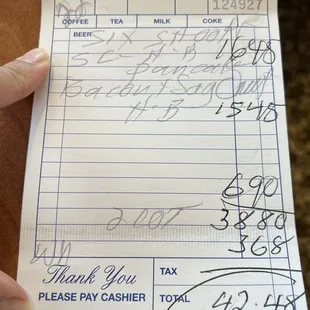 124927
COFFEE TEA MILK COKE
BEER SIX SHOOT 1648
SC H-B
Pancake
Bacon
H-B 1545
690
2 COF 3880
368
Thank You
PLEASE PAY CASHIER
TAX
TOTAL 42.48